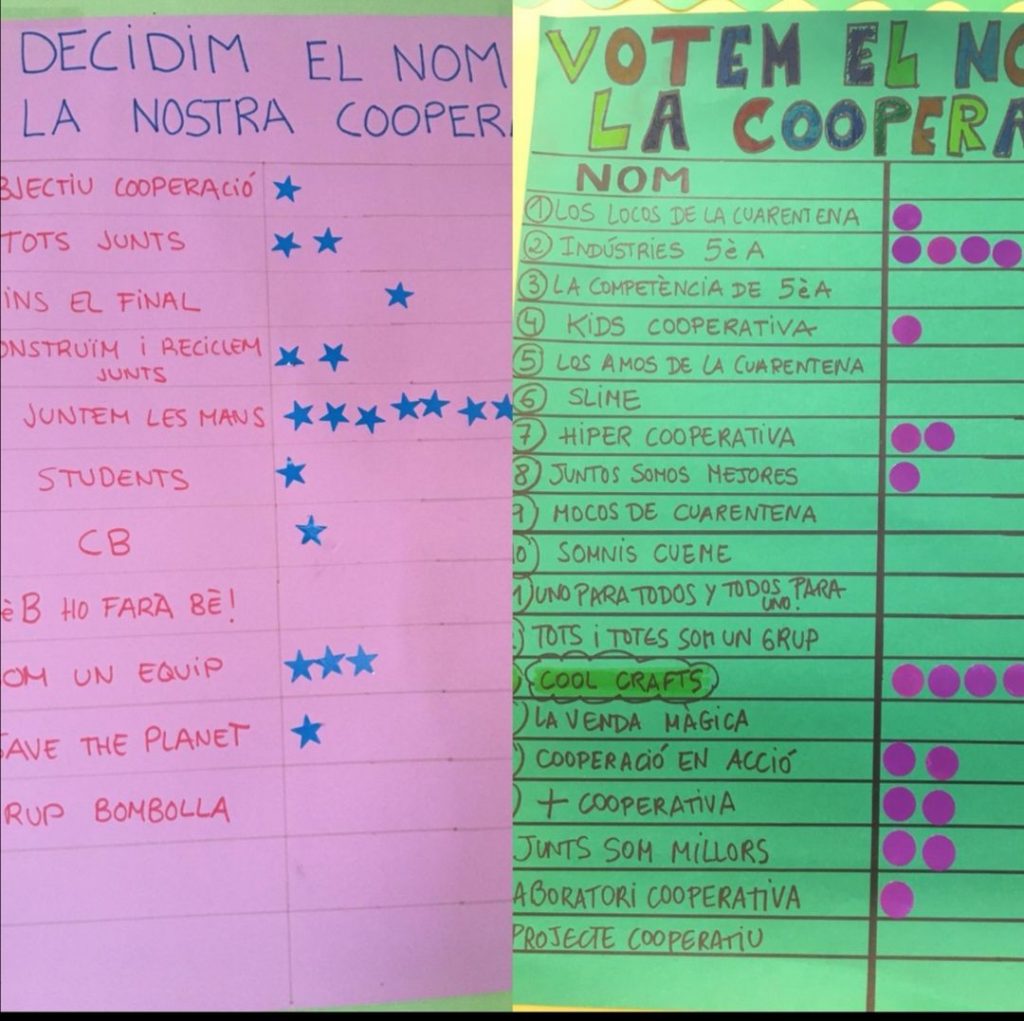 DECIDIM EL NOM
LA NOSTRA COOPERA
BJECTIU COOPERACIÓ
TOTS JUNTS
INS EL FINAL
ONSTRUÏM I RECICLEM
JUNTS
JUNTEM LES MANS
STUDENTS
CB
èB HO FARÀ BÉ!
OM UN EQUIP
SAVE THE PLANET
RUP BOMBOLLA
VOTEM EL NO
LA COOPERA
NOM
1 LOS LOCOS DE LA CUARENTENA
2 INDÚSTRIES 5è A
3 LA COMPETÈNCIA DE 5è A
4 KIDS COOPERATIVA
5 LOS AMOS DE LA CUARENTENA
6 SLIME
7 HIPER COOPERATIVA
8 JUNTOS SOMOS MEJORES
9 MOCOS DE CUARENTENA
0 SOMNIS CUEME
1 UNO PARA TODOS Y TODOS PARA
UNO.
TOTS I TOTES SOM UN GRUP
COOL CRAFTS
LA VENDA MÀGICA
COOPERACIÓ EN ACCIÓ
+ COOPERATIVA
JUNTS SOM MILLORS
ABORATORI COOPERATIVA
PROJECTE COOPERATIU